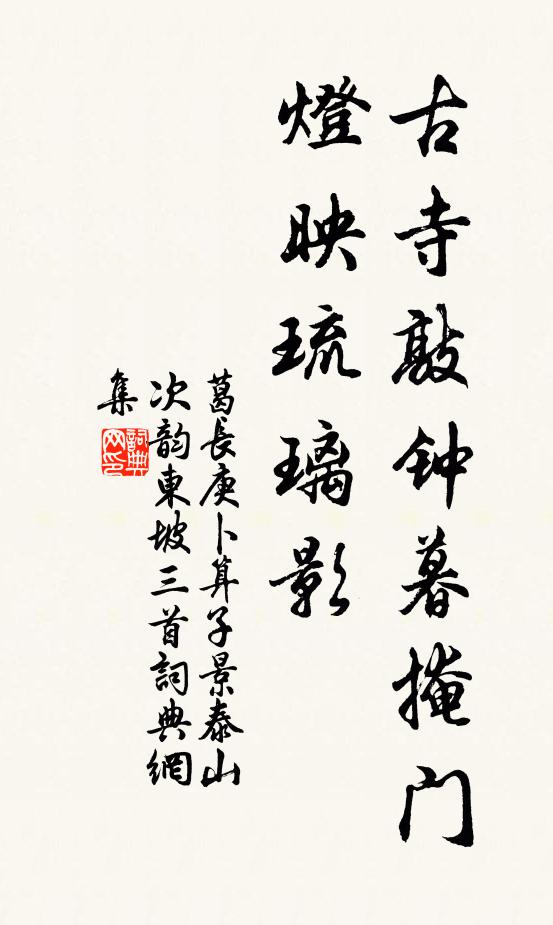 古寺敲钟暮掩门
燈映琉璃影
葛長庚卜算子景泰山
次韵東坡三首詞典網
集
詞典
网印